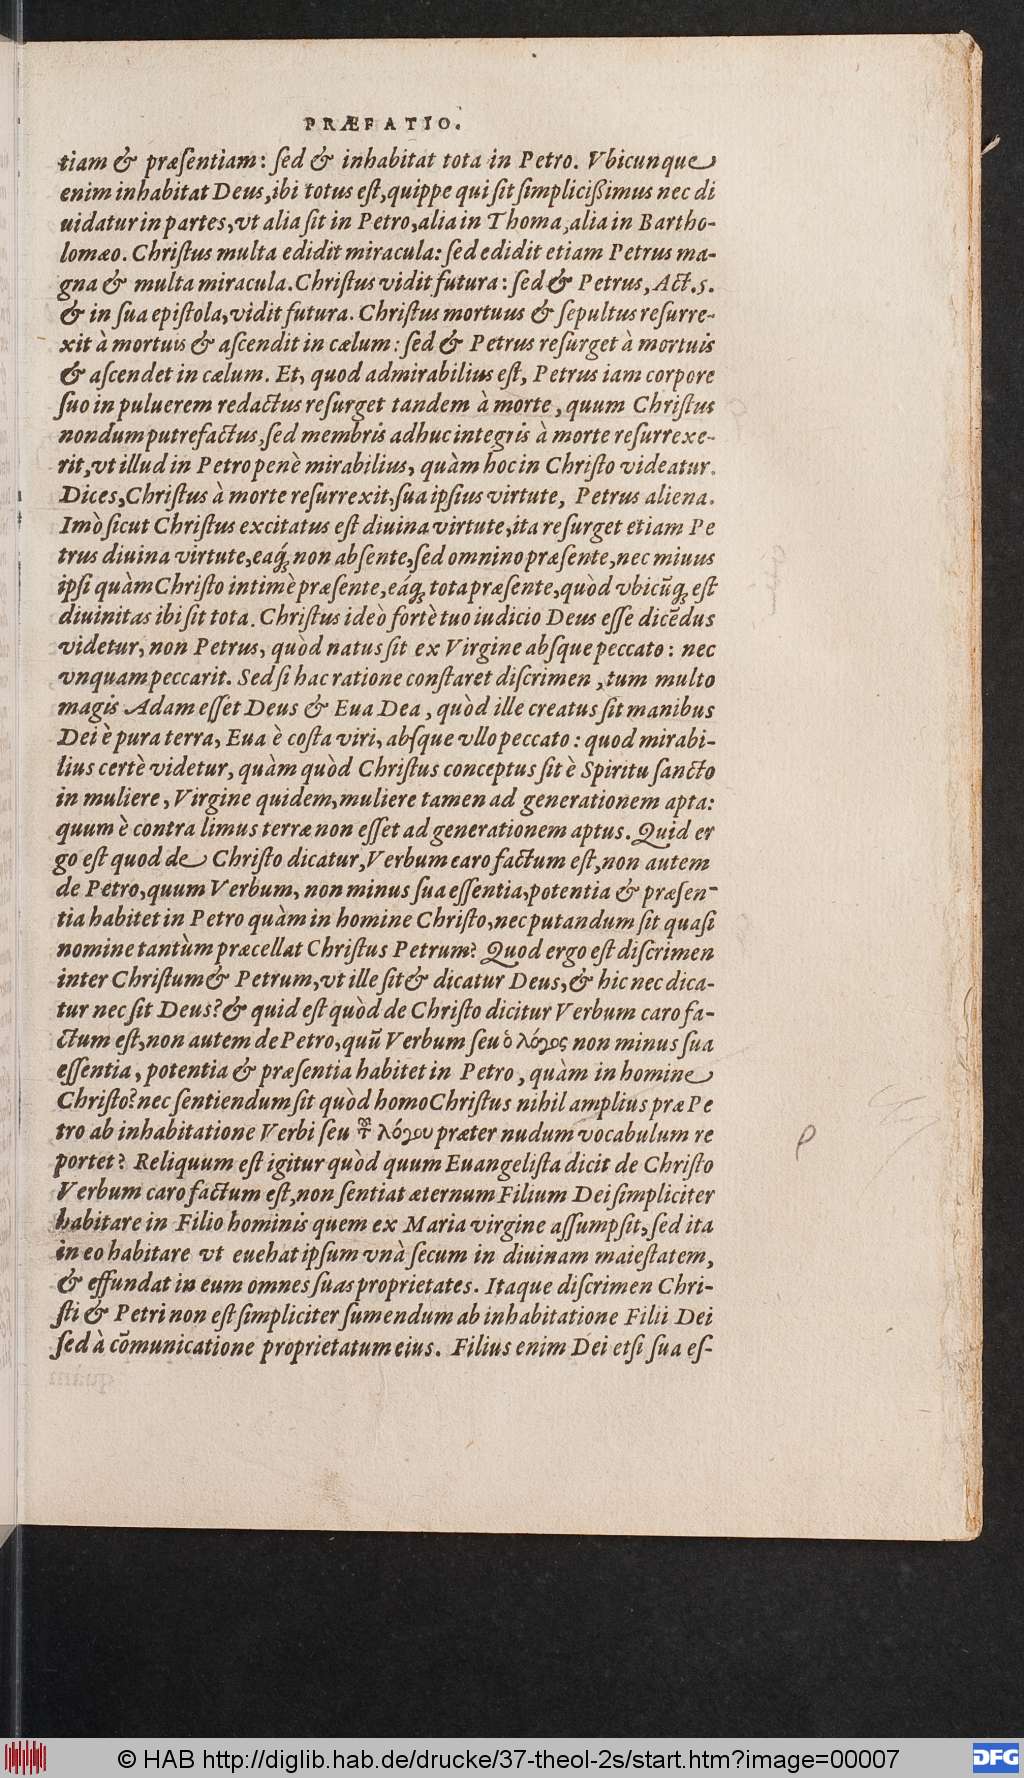 PRÆFATIO.
tiam & præſentiam: ſed & inhabitat tota in Petro. Vbicunque
enim inhabitat Deus, ibi totus eſt, quippe qui ſit ſimpliciſſimus nec di
uidatur in partes, vt alia ſit in Petro, alia in Thoma, alia in Bartho-
lomæo. Chriſtus multa edidit miracula: ſed edidit etiam Petrus ma-
gna & multa miracula. Chriſtus vidit futura: ſed & Petrus, Act. 5.
& in ſua epiſtola, vidit futura. Chriſtus mortuus & ſepultus reſurre-
xit à mortuis & aſcendit in cælum: ſed & Petrus reſurget à mortuis
& aſcendet in cælum. Et, quod admirabilius eſt, Petrus iam corpore
ſuo in puluerem redactus reſurget tandem à morte, quum Chriſtus
nondum putrefactus, ſed membris adhuc integris à morte reſurrexe-
rit, vt illud in Petro penè mirabilius, quàm hoc in Chriſto videatur.
Dices, Chriſtus à morte reſurrexit, ſua ipſius virtute, Petrus aliena.
Imò ſicut Chriſtus excitatus eſt diuina virtute, ita reſurget etiam Pe
trus diuina virtute, eaq́ꝫ non abſente, ſed omnino præſente, nec miuus
ipſi quàm Chriſto intimè præſente, eáqꝫ tota præſente, quòd vbicũqꝫ eſt
diuinitas ibi ſit tota. Chriſtus ideò fortè tuo iudicio Deus eſſe dicẽdus
videtur, non Petrus, quòd natus ſit ex Virgine abſque peccato: nec
vnquam peccarit. Sed ſi hac ratione conſtaret diſcrimen, tum multo
magis Adam eſſet Deus & Eua Dea, quòd ille creatus ſit manibus
Dei è pura terra, Eua è coſta viri, abſque vllo peccato: quod mirabi-
lius certè videtur, quàm quòd Chriſtus conceptus ſit è Spiritu ſancto
in muliere, Virgine quidem, muliere tamen ad generationem apta:
quum è contra limus terræ non eſſet ad generationem aptus. Quid er
go eſt quod de Chriſto dicatur, Verbum caro factum eſt, non autem
de Petro, quum Verbum, non minus ſua eſſentia, potentia & præſen-
tia habitet in Petro quàm in homine Chriſto, nec putandum ſit quaſi
nomine tantùm præcellat Chriſtus Petrum? Quod ergo eſt diſcrimen
inter Chriſtum & Petrum, vt ille ſit & dicatur Deus, & hic nec dica-
tur nec ſit Deus? & quid eſt quòd de Chriſto dicitur Verbum caro fa-
ctum eſt, non autem de Petro, quũ Verbum ſeu ὁ λόγος non minus ſua
eſſentia, potentia & præſentia habitet in Petro, quàm in homine
Chriſto? nec ſentiendum ſit quòd homo Chriſtus nihil amplius præ Pe
tro ab inhabitatione Verbi ſeu τοῦ λόγου præter nudum vocabulum re
portet? Reliquum eſt igitur quòd quum Euangeliſta dicit de Chriſto
Verbum caro factum eſt, non ſentiat æternum Filium Dei ſimpliciter
habitare in Filio hominis quem ex Maria virgine aſſumpſit, ſed ita
in eo habitare vt euehat ipſum vnà ſecum in diuinam maieſtatem,
& effundat in eum omnes ſuas proprietates. Itaque diſcrimen Chri-
ſti & Petri non eſt ſimpliciter ſumendum ab inhabitatione Filii Dei
ſed à cõmunicatione proprietatum eius. Filius enim Dei etſi ſua eſ-
© HAB http://diglib.hab.de/drucke/37-theol-2s/start.htm?image=00007
DFG